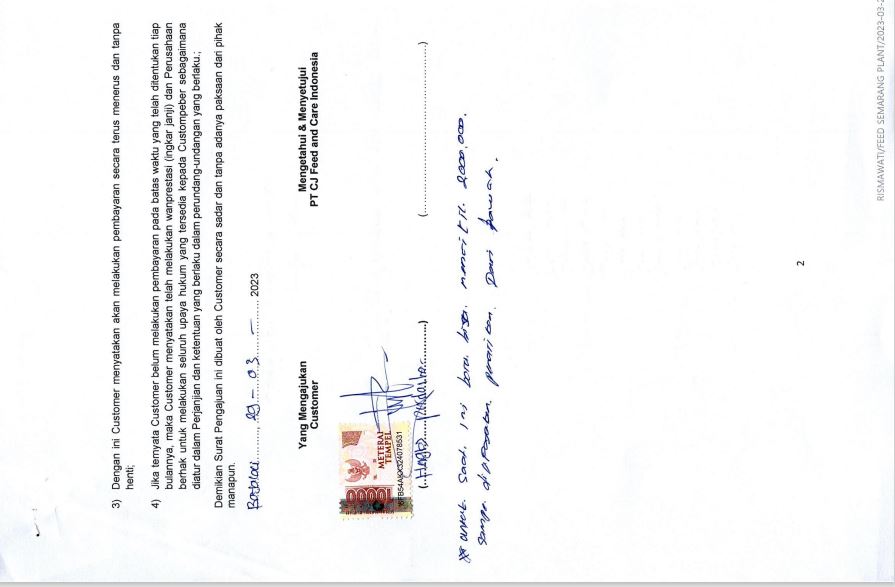 3) Dengan ini Customer menyatakan akan melakukan pembayaran secara terus menerus dan tanpa
henti;
4) Jika ternyata Customer belum melakukan pembayaran pada batas waktu yang telah ditentukan tiap
bulannya, maka Customer menyatakan telah melakukan wanprestasi (ingkar janji) dan Perusahaan
berhak untuk melakukan seluruh upaya hukum yang tersedia kepada Custompeber sebagaimana
diatur dalam Perjanjian dan ketentuan yang berlaku dalam perundang-undangan yang berlaku.;
Demikian Surat Pengajuan ini dibuat oleh Customer secara sadar dan tanpa adanya paksaan dari pihak
manapun.
Boyolali.........., 29 - 03 - ........... 2023
Yang Mengajukan
Customer
Mengetahui & Menyetujui
PT CJ Feed and Care Indonesia
10000
METERAI
TEMPEL
(..............................)
(.................................................)
saat. ini baru bisa. mencicil. 2.000.000.
Dari bawah.
2
RISMAWATI/FEED SEMARANG PLANT/2023-03-2